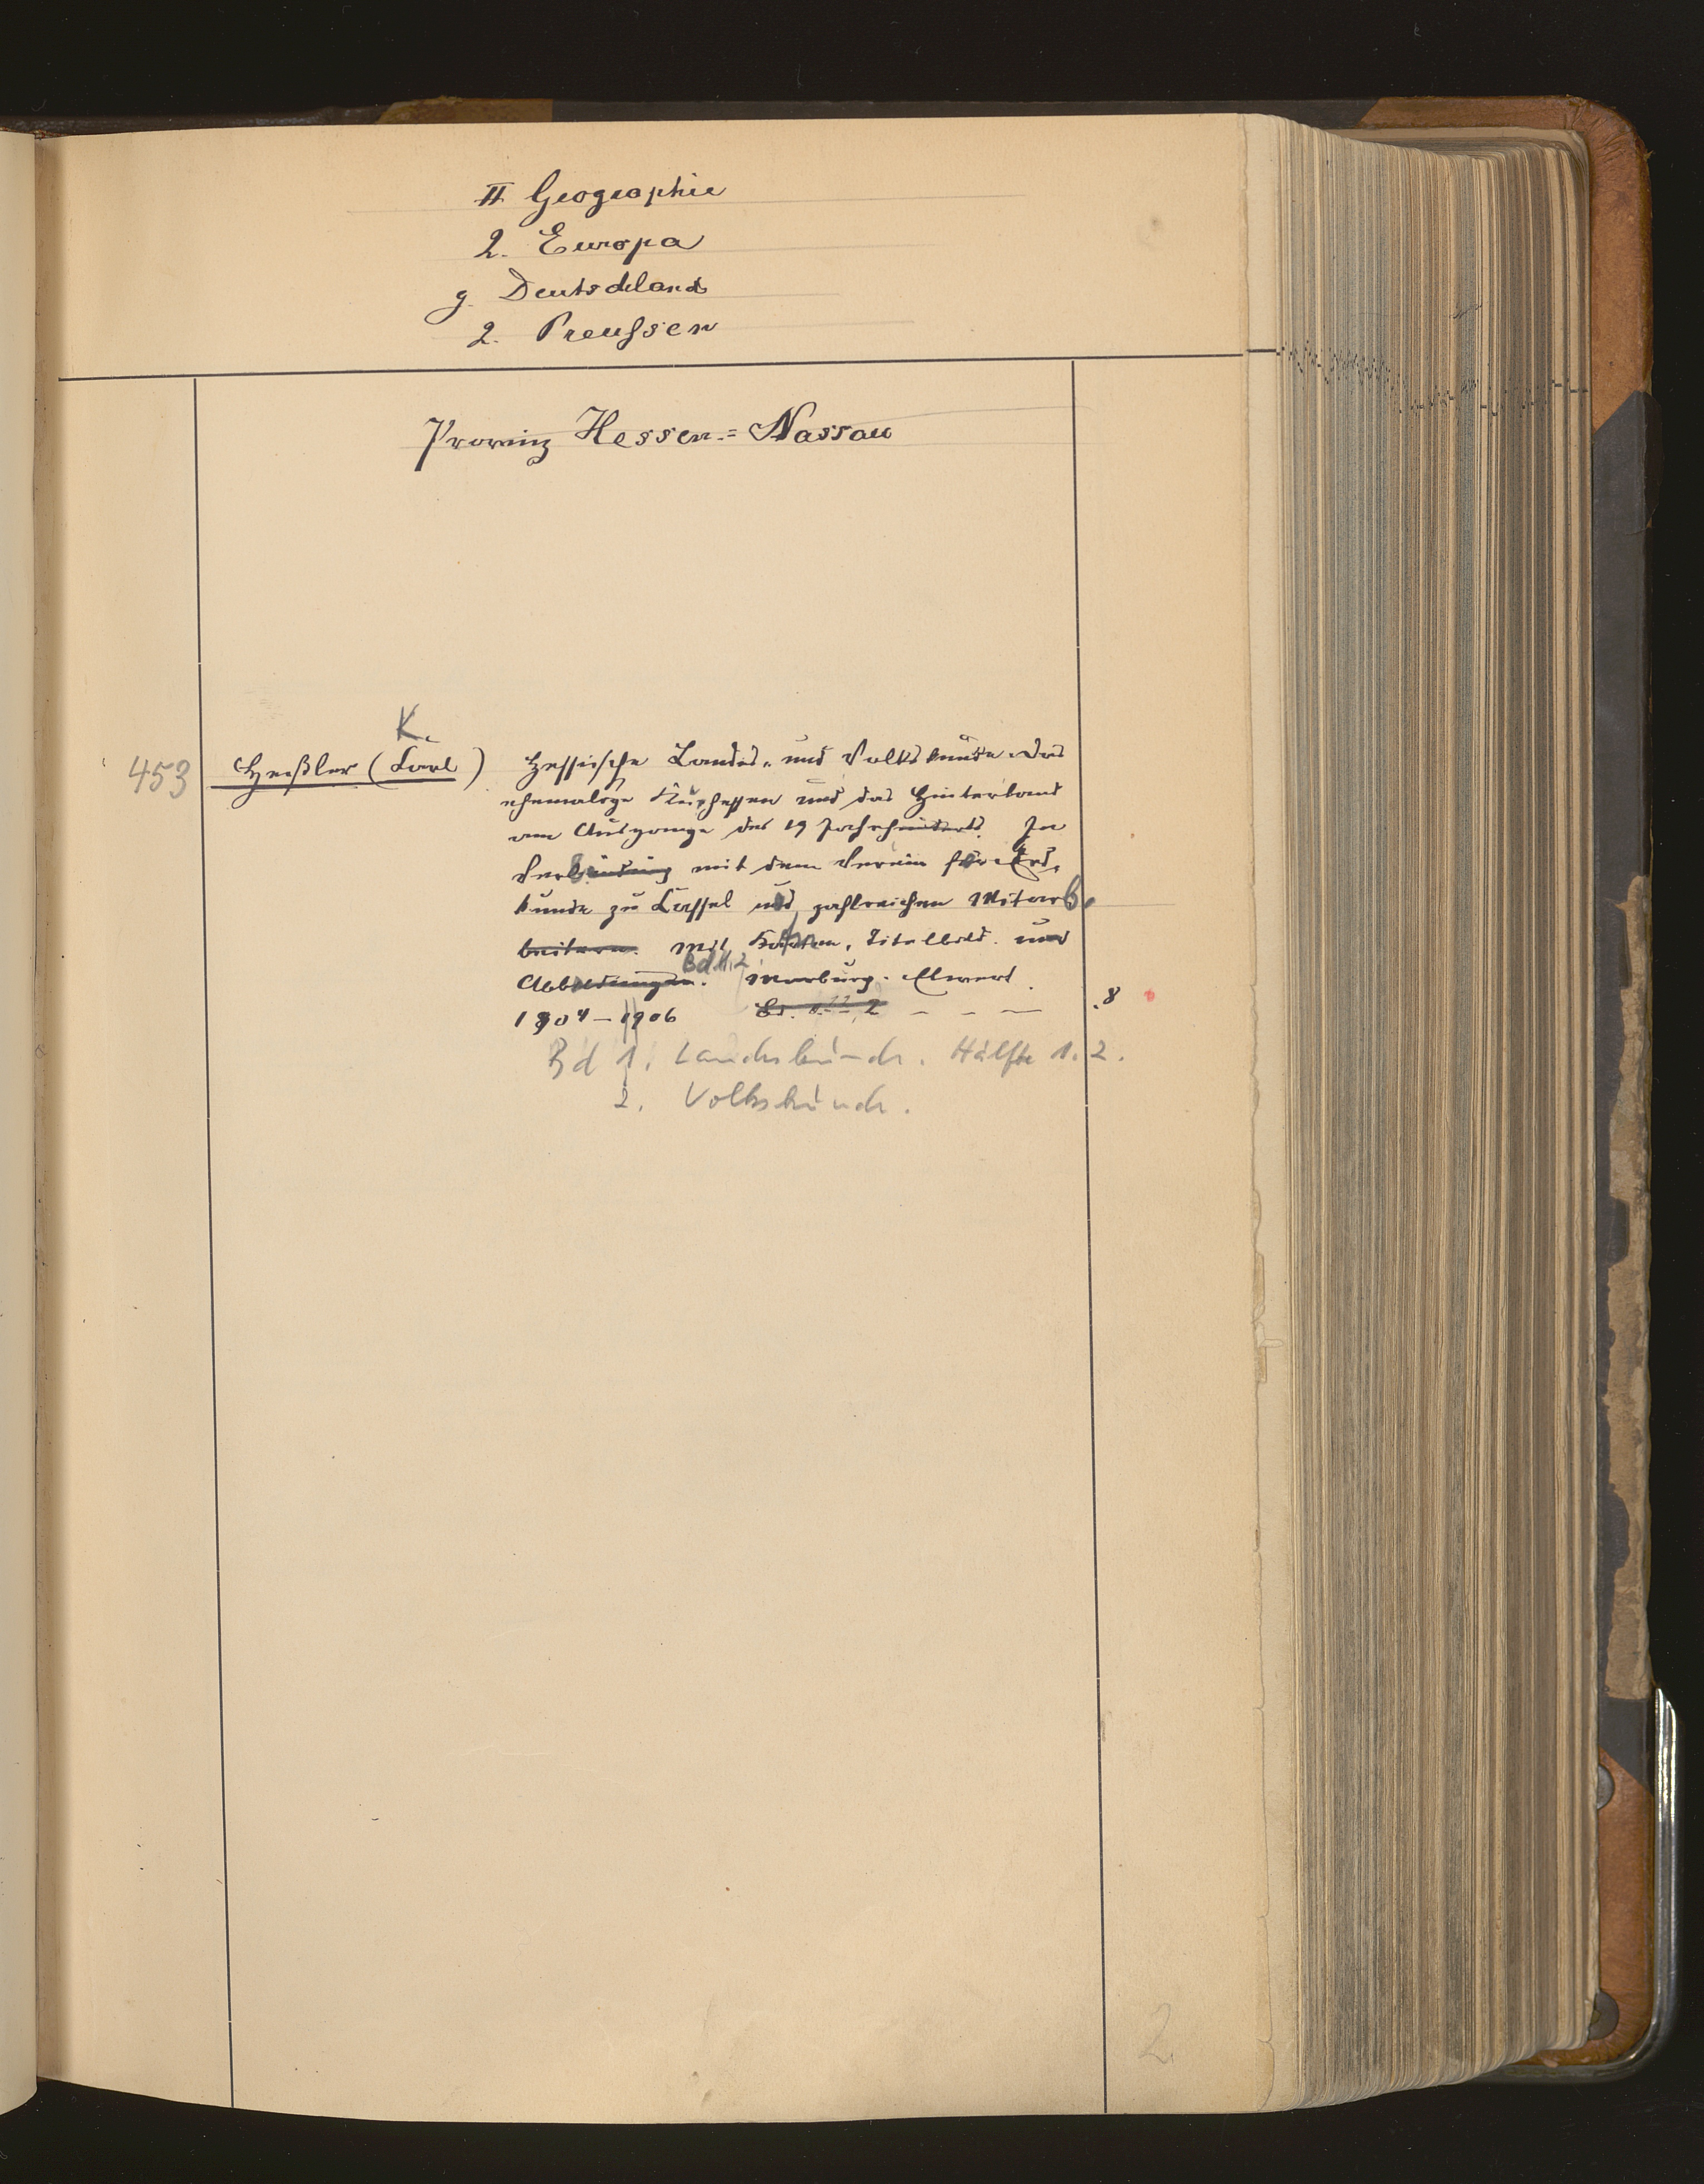 II Geographie
2. Europa
g. Deutschland
2. Preußen
Provinz Hessen-Nassau
K.
453 Heßler (Carl) Hessische Landes- und Volkskunde. Das
ehemalige Kurhessen und das Hinterland
am Ausgange des 19 Jahrhunderts. In
Verbindung mit dem Verein für Erd-
kunde zu Cassel und zahlreichen Mitarb.
beitern. Mit Karten, Titelbild und
Bd 1. 2.
Abbildungen. Marburg. Elwert.
1904-1906 Bd. 2 - - - 8
Bd 1. Landeskunde. Hälfte 1. 2.
2. Volkskunde.
2